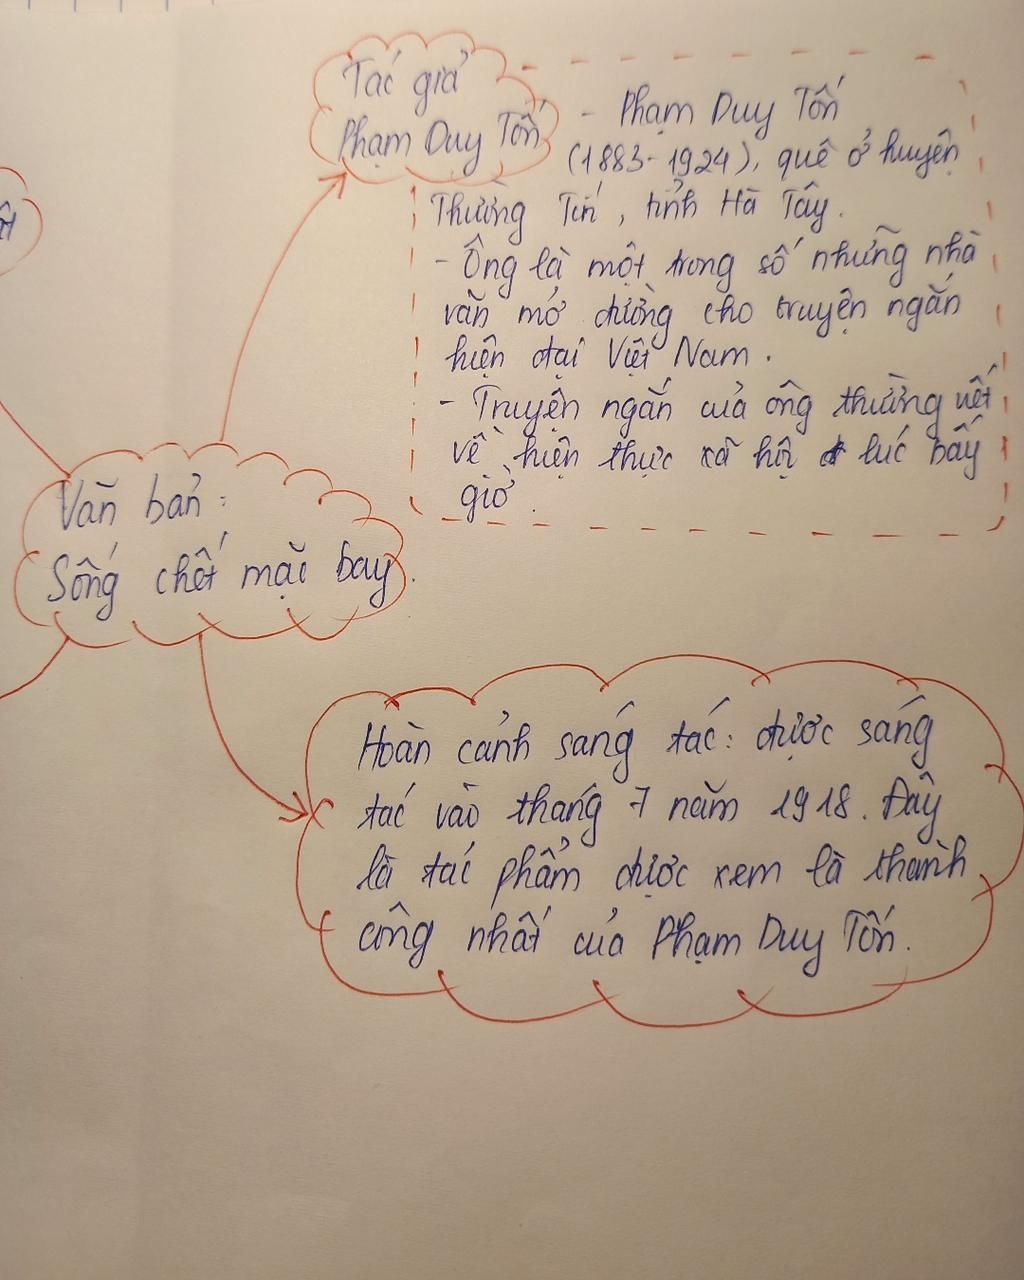 Tác giả
Phạm Duy Tốn
- Phạm Duy Tốn
(1883-1924), quê ở huyện
Thường Tín, tỉnh Hà Tây.
- Ông là một trong số những nhà
văn mở đường cho truyện ngắn
hiện đại Việt Nam.
- Truyện ngắn của ông thường viết
về hiện thực xã hội lúc bấy
giờ.
Văn bản:
Sống chết mặc bay.
Hoàn cảnh sáng tác: được sáng
tác vào tháng 7 năm 1918. Đây
là tác phẩm được xem là thành
công nhất của Phạm Duy Tốn.